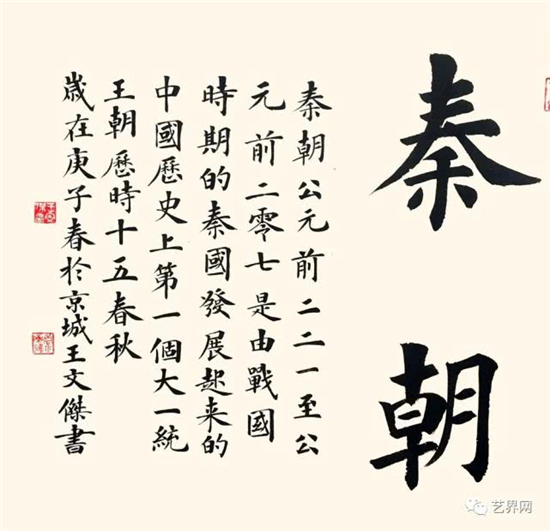 秦朝
秦朝公元前二二一至公
元前二零七是由戰國
時期的秦國發展起来的
中國歷史上第一個大一統
王朝歷時十五春秋
歲在庚子春於京城王文傑書
艺界网